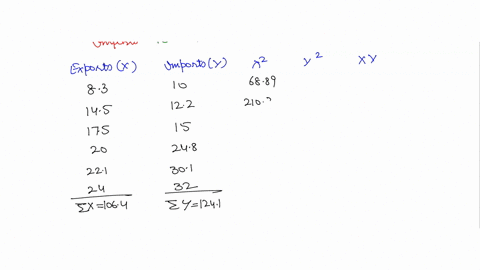 Exports (X) Imports (Y) x² y² XY
8.3 10 68.89
14.5 12.2 210.2
175 15
20 24.8
22.1 30.1
24 32
ΣX=106.4 ΣY=124.1